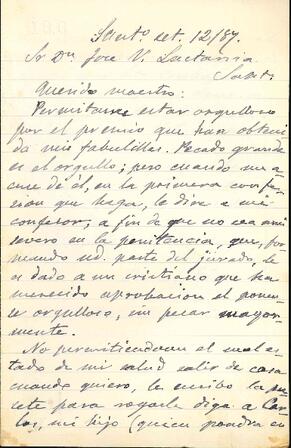 Santo. set. 12/87.
Sr Dn Jose V. Lastarria
Sant.
Querido maestro:
Permítame estar orgulloso
por el premio que han obteni
do mis fabulillas. Pecado grande
es el orgullo; pero cuando me a
cuse de él, en la primera confe
sion que haga, le diré a mi
confesor, a fin de que no sea mui
severo en la penitencia, que, for
mando ud. parte del jurado, le
es dado a un cristiano que ha
merecido aprobacion el poner
se orgulloso, sin pecar mayor
mente.
No permitiéndome el mal es
tado de mi salud salir de casa
cuando quiero, le escribo la pre
sente para rogarle diga a Car
los, mi hijo (quien pondrá en